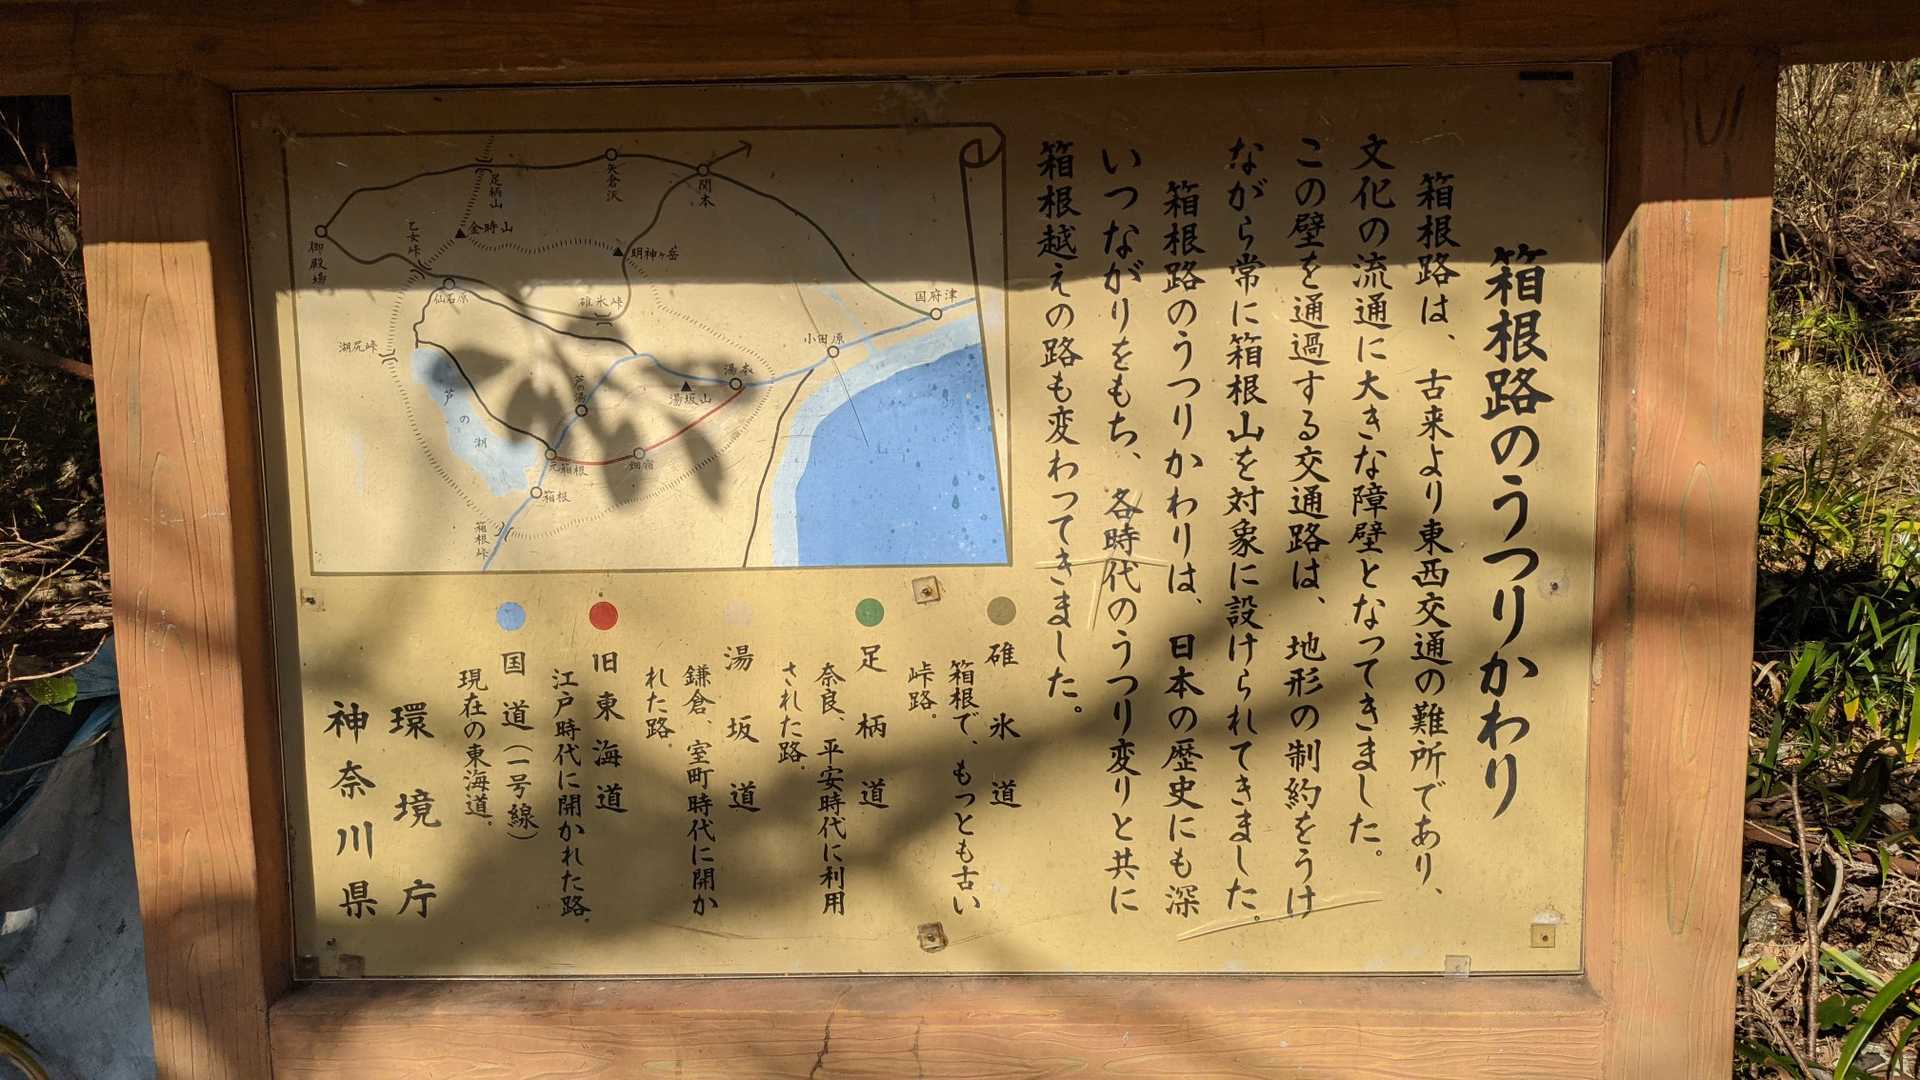 箱根路のうつりかわり
箱根路は、古来より東西交通の難所であり、
文化の流通に大きな障壁となってきました。
この壁を通過する交通路は、地形の制約をうけ
ながら常に箱根山を対象に設けられてきました。
箱根路のうつりかわりは、日本の歴史にも深
いつながりをもち、各時代のうつり変りと共に
箱根越えの路も変わってきました。
碓氷道
箱根で、もっとも古い
峠路。
足柄道
奈良、平安時代に利用
された路。
湯坂道
鎌倉、室町時代に開か
れた路。
旧東海道
江戸時代に開かれた路。
国道（一号線）
現在の東海道。
環境庁
神奈川県
足柄山
矢倉沢
関本
御殿場
乙女峠
金時山
明神ヶ岳
仙石原
碓氷峠
国府津
小田原
湖尻峠
芦の湖
芦の湯
湯本
湯坂山
元箱根
畑宿
箱根
箱根峠